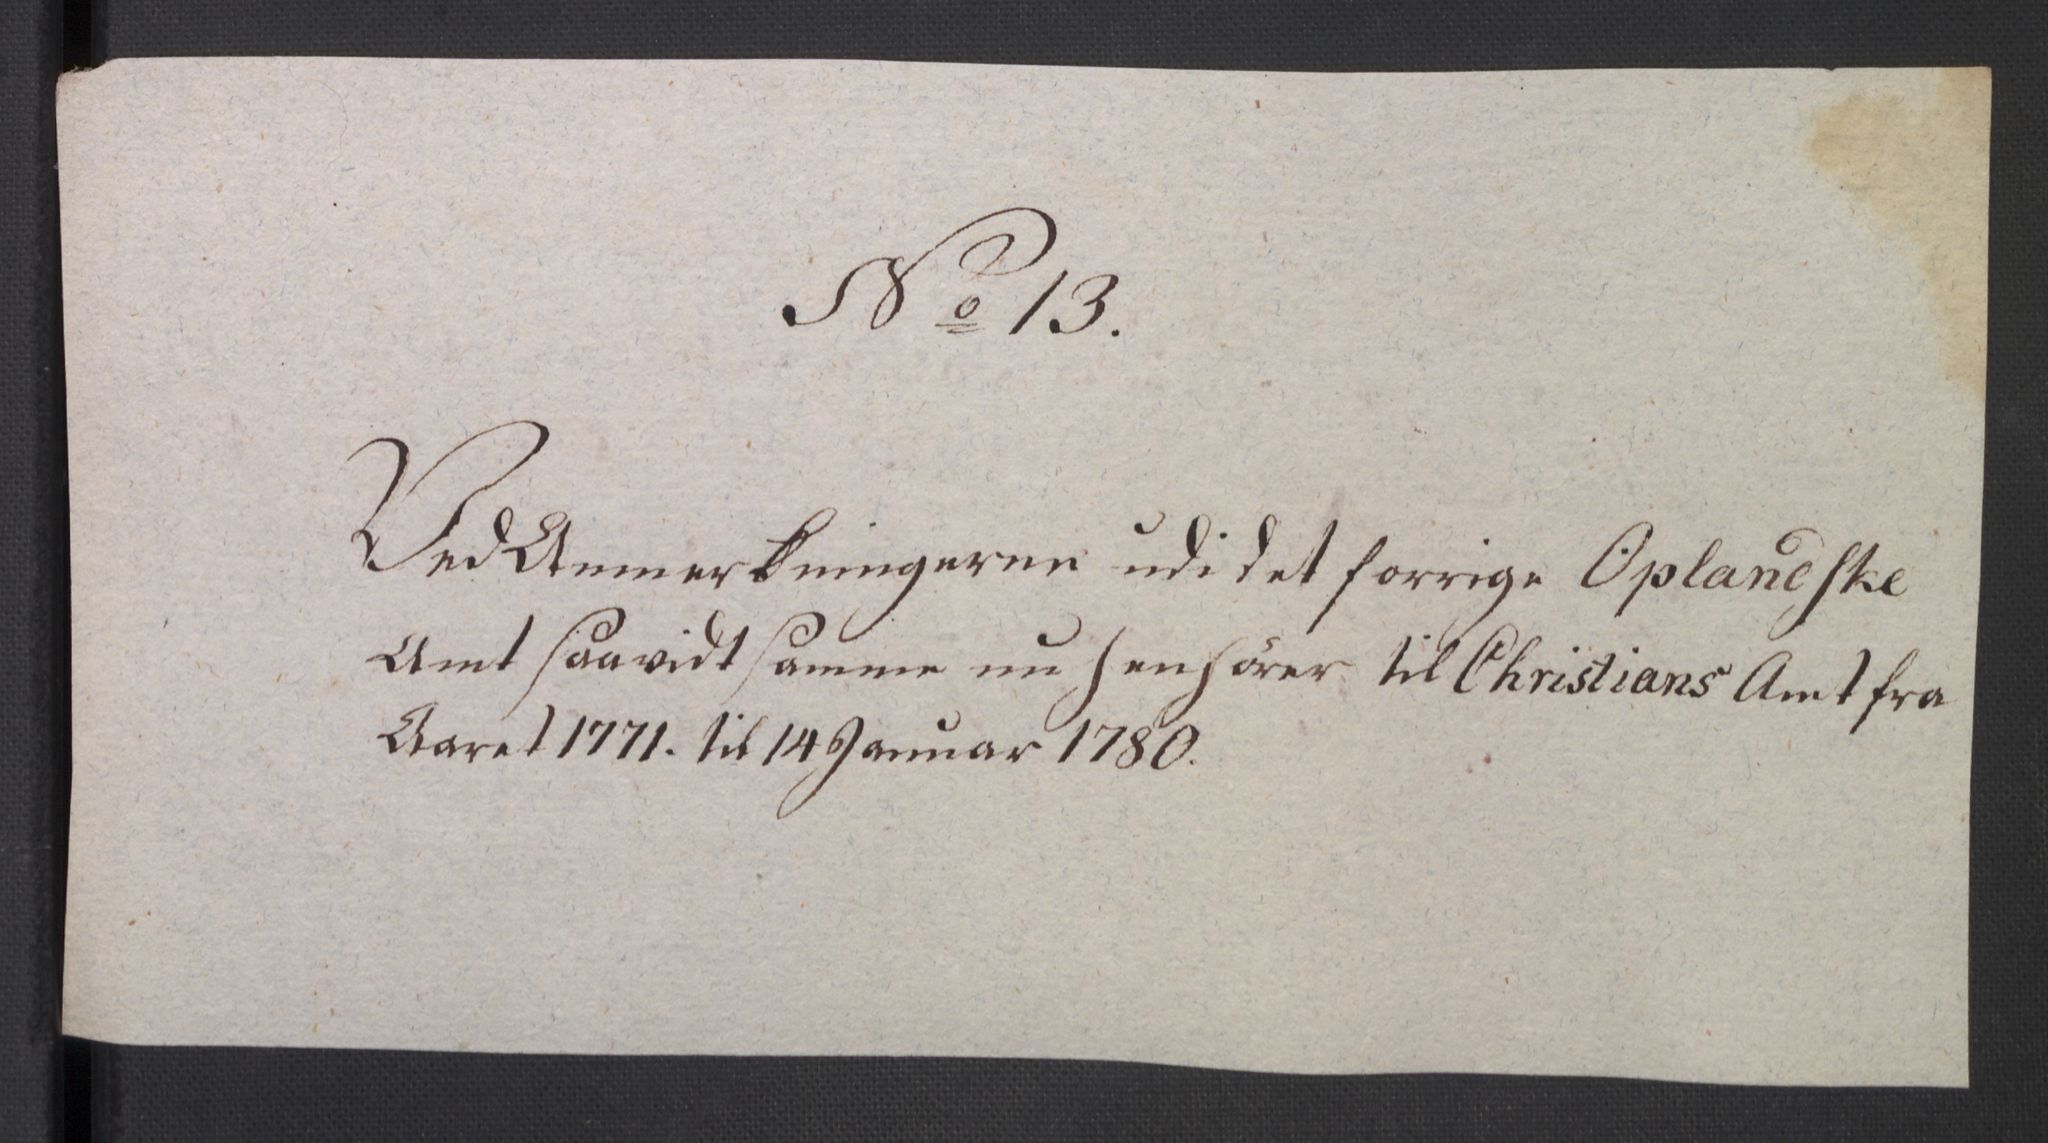 No 13.
Ved Anmerkningerne udi det forrige Oplandske
Amt saavidt samme nu henhörer til Christians Amt fra
Aaret 1771. til 14 Januar 1780.